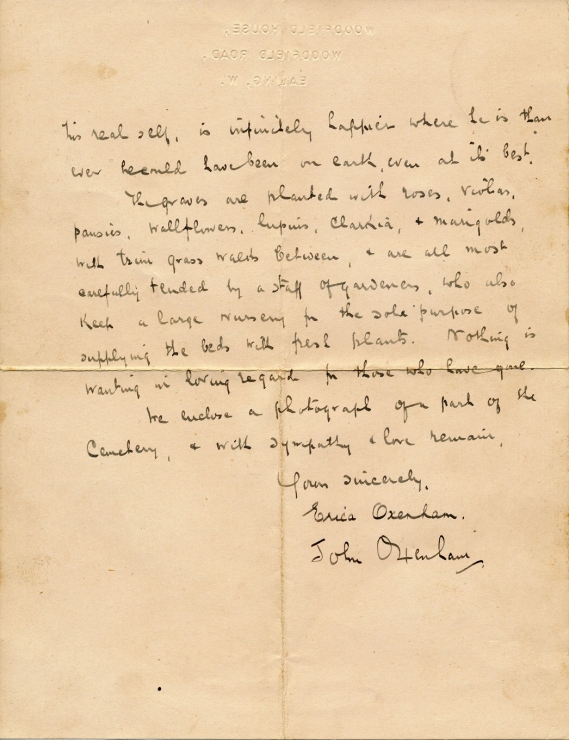 WOODFIELD HOUSE,
WOODFIELD ROAD,
EALING, W.
his real self, is infinitely happier where he is than
ever he could have been on earth, even at its best.
The graves are planted with roses, violas,
pansies, wallflowers, lupins, clarkia, & marigolds,
with trim grass walks between, & are all most
carefully tended by a staff of gardeners, who also
keep a large nursery for the sole purpose of
supplying the beds with fresh plants. Nothing is
wanting in loving regard for those who have gone.
We enclose a photograph of a part of the
Cemetery, & with sympathy & love remain,
Yours sincerely,
Erica Oxenham.
John Oxenham